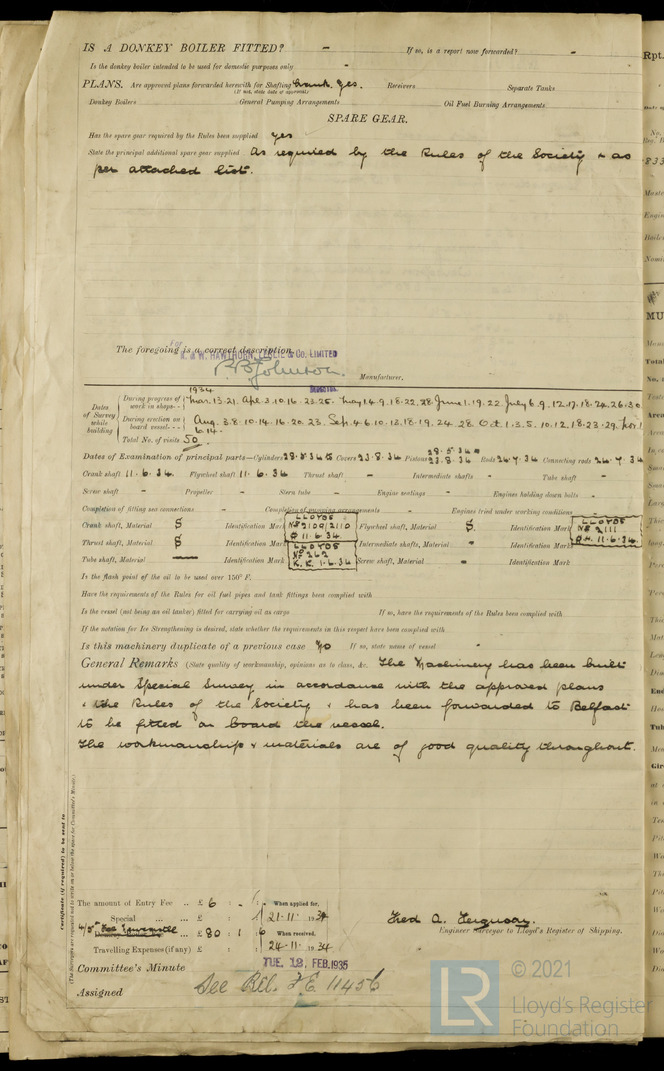 IS A DONKEY BOILER FITTED? - If so, is a report now forwarded? -
Is the donkey boiler intended to be used for domestic purposes only -
PLANS. Are approved plans forwarded herewith for Shafting Crank. Yes. Receivers Separate Tanks
(If not, state date of approval)
Donkey Boilers General Pumping Arrangements Oil Fuel Burning Arrangements
SPARE GEAR.
Has the spare gear required by the Rules been supplied yes
State the principal additional spare gear supplied As required by the Rules of the Society & as
per attached list.
The foregoing is a correct description,
FOR R. & W. HAWTHORN, LESLIE & Co. LIMITED
Manufacturer.
DIRECTOR.
1934
Dates of Survey while building
During progress of work in shops - - Mar. 13. 21. Apl. 3. 10. 16. 23. 25. May 1. 4. 9. 18. 22. 28. June 1. 19. 22. July 6. 9. 12. 17. 18. 24. 26. 30
During erection on board vessel - - - Aug. 3. 8. 10. 14. 16. 20. 23. Sep. 4. 6. 10. 13. 18. 19. 24. 28. Oct 1. 3. 5. 10. 12. 18. 23. 29. Nov 1
6. 14.
Total No. of visits 50.
Dates of Examination of principal parts—Cylinders 28.5.34 Covers 23.8.34 Pistons 28.5.34 23.8.34 Rods 24.7.34 Connecting rods 24.7.34
Crank shaft 11.6.34 Flywheel shaft 11.6.34 Thrust shaft - Intermediate shafts - Tube shaft -
Screw shaft - Propeller - Stern tube - Engine seatings - Engines holding down bolts -
Completion of fitting sea connections - Completion of pumping arrangements - Engines tried under working conditions -
Crank shaft, Material S Identification Mark LLOYDS No 2109/2110 11.6.34 Flywheel shaft, Material S. Identification Mark LLOYDS No 2111 11.6.34
Thrust shaft, Material S Identification Mark LLOYDS No 262 K.R. 1.6.34 Intermediate shafts, Material - Identification Mark
Tube shaft, Material — Identification Mark Screw shaft, Material - Identification Mark
Is the flash point of the oil to be used over 150° F.
Have the requirements of the Rules for oil fuel pipes and tank fittings been complied with
Is the vessel (not being an oil tanker) fitted for carrying oil as cargo If so, have the requirements of the Rules been complied with
If the notation for Ice Strengthening is desired, state whether the requirements in this respect have been complied with
Is this machinery duplicate of a previous case No If so, state name of vessel -
General Remarks (State quality of workmanship, opinions as to class, &c. The Machinery has been built
under Special Survey in accordance with the approved plans
& the Rules of the Society & has been forwarded to Belfast
to be fitted on board the vessel.
The workmanship & materials are of good quality throughout.
Certificate (if required) to be sent to
(The Surveyors are requested not to write on or below the space for Committee's Minute.)
The amount of Entry Fee .. £ 6 : - : When applied for,
Special ... ... £ : : 21.11. 1934
4/5 £ 80 : 1 : 6 When received,
Travelling Expenses (if any) £ : : 24.11. 1934
Fred A. Ferguson.
Engineer Surveyor to Lloyd's Register of Shipping.
Committee's Minute TUE. 12 FEB. 1935
Assigned See Bel. F.E. 11456
LR © 2021
Lloyd's Register
Foundation